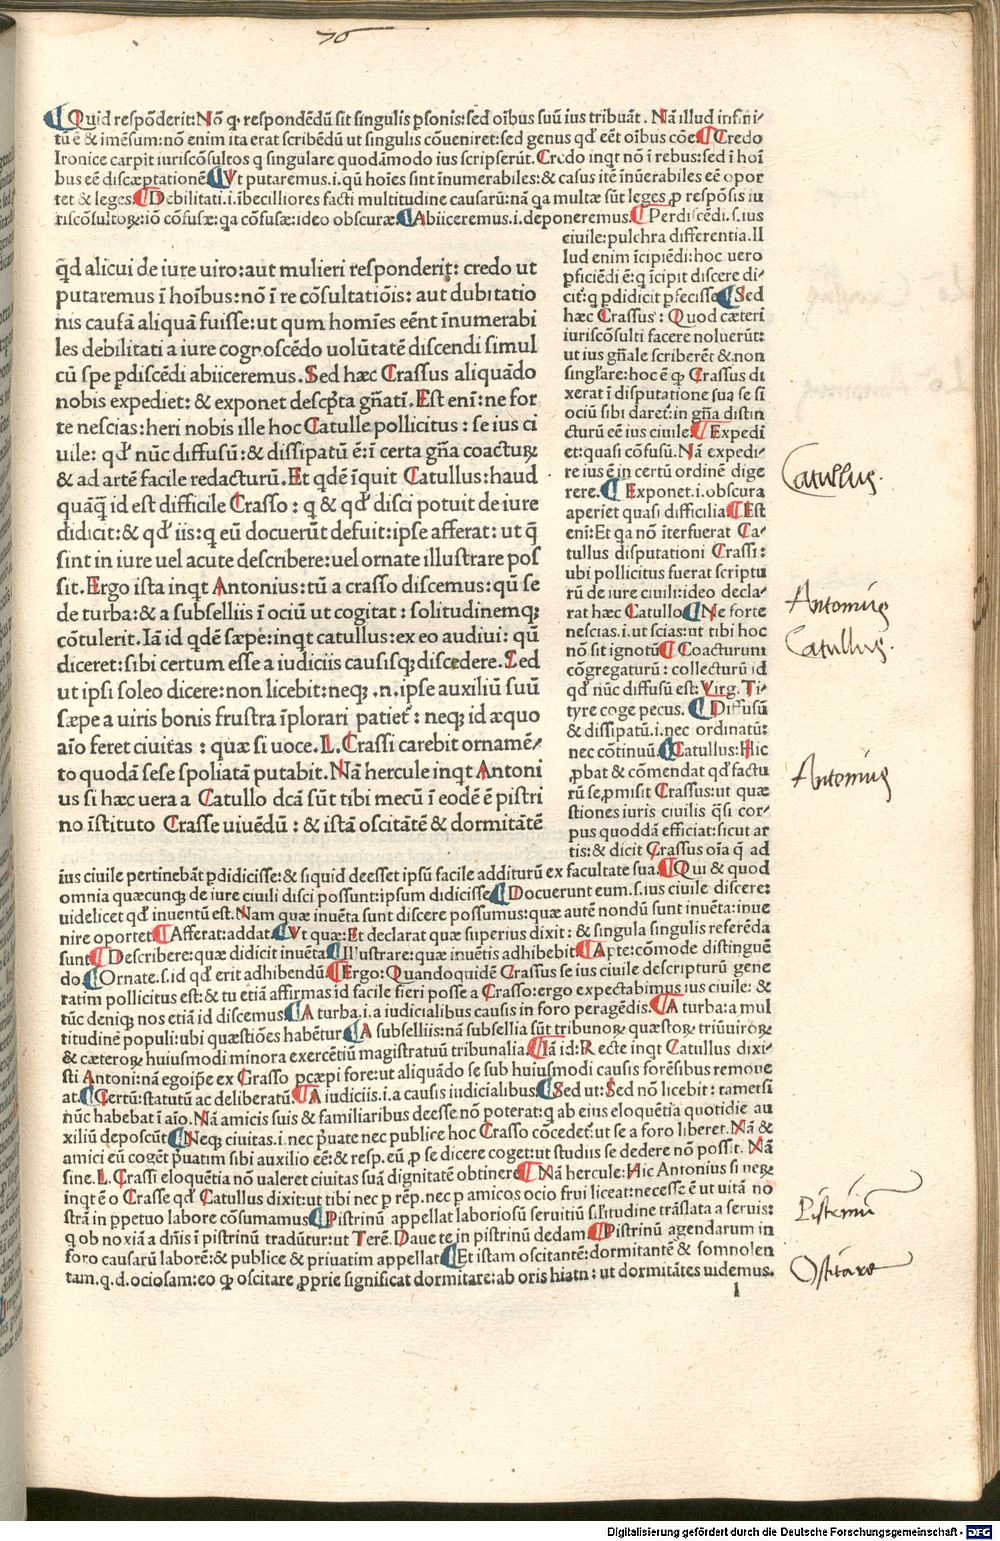 76
Quid respōderit: Nō ꝙ respondēdū sit singulis ꝑsonis: sed oībus suū ius tribuāt. Nā illud infini-
tū ē & imēsum: nō enim ita erat scribēdū ut singulis cōueniret: sed genus qď eēt oībus cōe. Credo
Ironice carpit iuriscōsultos q singulare quodāmodo ius scripserūt. Credo inqt nō ī rebus: sed ī hoī
bus eē discæptationē. Vt putaremus .i. qū hoīes sint īnumerabiles: & casus itē īnūerabiles eē opor
tet & leges. Debilitati .i. ībecilliores facti multitudine causarū: nā qa multæ sūt leges ꝓ respōsis iu
riscōsultoꝝ: iō cōfusæ: qa cōfusæ: ideo obscuræ. Abiiceremus .i. deponeremus. Perdiscēdi .s. ius
ciuile: pulchra differentia. Il
lud enim īcipiēdi: hoc uero
ꝑficiēdi ē: q īcipit discere di-
cit: q ꝑdidicit ꝑfecisse. Sed
hæc Crassus: Quod cæteri
iuriscōsulti facere noluerūt:
ut ius gn̄ale scriberēt & non
singlare: hoc ē ꝙ Crassus di
xerat ī disputatione sua se si
ociū sibi daret᷑: in gn̄a distin
cturū eē ius ciuile. Expedi
et: quasi cōfusū. Nā expedi-
re ius ē in certū ordinē dige
rere. Exponet .i. obscura
aperiet quasi difficilia. Est
enī: Et qa nō īterfuerat Ca-
tullus disputationi Crassi:
ubi pollicitus fuerat scriptu
rū de iure ciuili: ideo decla-
rat hæc Catullo. Ne forte
nescias .i. ut scias: ut tibi hoc
nō sit ignotū. Coacturum
cōgregaturū: collecturū id
qď nūc diffusū est: Virg. Ti-
tyre coge pecus. Diffusū
& dissipatū .i. nec ordinatū:
nec cōtinuū. Catullus: Hic
ꝓbat & cōmendat qď factu
rū se ꝓmisit Crassus: ut quæ
stiones iuris ciuilis q̄si cor-
pus quoddā efficiat: sicut ar
tis: & dicit Crassus oīa q̄ ad
q̄d alicui de iure uiro: aut mulieri responderit: credo ut
putaremus ī hoībus: nō ī re cōsultatiōis: aut dubitatio
nis causā aliquā fuisse: ut qum homīes eēnt īnumerabi
les debilitati a iure cognoscēdo uolūtatē discendi simul
cū spe ꝑdiscēdi abiiceremus. Sed hæc Crassus aliquādo
nobis expediet: & exponet descp̄ta gn̄atī. Est enī: ne for
te nescias: heri nobis ille hoc Catulle pollicitus: se ius ci
uile: qď nūc diffusū: & dissipatū ē: ī certa gn̄a coacturꝝ
& ad artē facile redacturū. Et qdē īquit Catullus: haud
quāq̄ id est difficile Crasso: q & qď disci potuit de iure
didicit: & qď iis: q eū docuerūt defuit: ipse afferat: ut q̄
sint in iure uel acute describere: uel ornate illustrare pos
sit. Ergo ista inqt Antonius: tū a crasso discemus: qū se
de turba: & a subselliis ī ociū ut cogitat: solitudinemꝗ
cōtulerit. Iā id qdē sæpe: inqt catullus: ex eo audiui: qū
diceret: sibi certum esse a iudiciis causisꝗ discedere. Sed
ut ipsi soleo dicere: non licebit: neꝗ .n. ipse auxiliū suū
sæpe a uiris bonis frustra īplorari patiet᷑: neꝗ id æquo
aīo feret ciuitas: quæ si uoce .L. Crassi carebit ornamē-
to quodā sese spoliatā putabit. Nā hercule inqt Antoni
us si hæc uera a Catullo dcā sūt tibi mecū ī eodē ē pistri
no īstituto Crasse uiuēdū: & istā oscitātē & dormitātē
īus ciuile pertinebāt ꝑdidicisse: & siquid deesset ipsū facile additurū ex facultate sua. Qui & quod
omnia quæcunꝗ de iure ciuili disci possunt: ipsum didicisse. Docuerunt eum .s. ius ciuile discere:
uidelicet qď inuentū est. Nam quæ inuēta sunt discere possumus: quæ autē nondū sunt inuēta: inue
nire oportet. Afferat: addat. Vt quæ: Et declarat quæ superius dixit: & singula singulis referēda
sunt. Describere: quæ didicit inuēta. Illustrare: quæ inuētis adhibebit. Apte: cōmode distinguē
do. Ornate .s. id qď erit adhibendū. Ergo: Quandoquidē Crassus se ius ciuile descripturū gene
ratim pollicitus est: & tu etiā affirmas id facile fieri posse a Crasso: ergo expectabimus ius ciuile: &
tūc deniꝗ nos etiā id discemus. A turba .i. a iudicialibus causis in foro peragēdis. A turba: a mul
titudinē populi: ubi quæstiōes habētur. A subselliis: nā subsellia sūt tribunoꝝ quæstoꝝ triūuiroꝝ
& cæteroꝝ huiusmodi minora exercētiū magistratuū tribunalia. Iā id: Recte inqt Catullus dixi-
sti Antoni: nā egoip̄e ex Crasso ꝑcæpi fore: ut aliquādo se sub huiusmodi causis forēsibus remoue
at. Certū: statutū ac deliberatū. A iudiciis .i. a causis iudicialibus. Sed ut: Sed nō licebit: tametsi
nūc habebat ī aīo. Nā amicis suis & familiaribus deesse nō poterat: q ab eius eloquētia quotidie au
xiliū deposcūt. Neꝗ ciuitas .i. nec p̄uate nec publice hoc Crasso cōcedet᷑: ut se a foro liberet. Nā &
amici eū cogēt p̄uatim sibi auxilio eē: & resp. eū ꝓ se dicere coget: ut studiis se dedere nō possit. Nā
sine .L. Crassi eloquētia nō ualeret ciuitas suā dignitatē obtinere. Nā hercule: Hic Antonius si ueꝝ
inqt ē o Crasse qď Catullus dixit: ut tibi nec ꝓ rēp. nec ꝓ amicos ocio frui liceat: necesse ē ut uitā no
strā in ꝑpetuo labore cōsumamus. Pistrinū appellat laboriosū seruitiū sl̄itudine trāslata a seruis:
q ob noxiā a dn̄is ī pistrinū tradūtur: ut Terē. Daue te in pistrinū dedam. Pistrinū agendarum in
foro causarū laborē: & publice & priuatim appellat. Et istam oscitantē: dormitantē & somnolen
tam. q.d. ociosam: eo ꝙ oscitare ꝓprie significat dormitare: ab oris hiatu: ut dormitātes uidemus.
l
Catullus.
Antonius
Catullus.
Antonius
Pistrinū
Ostitare
Digitalisierung gefördert durch die Deutsche Forschungsgemeinschaft - DFG